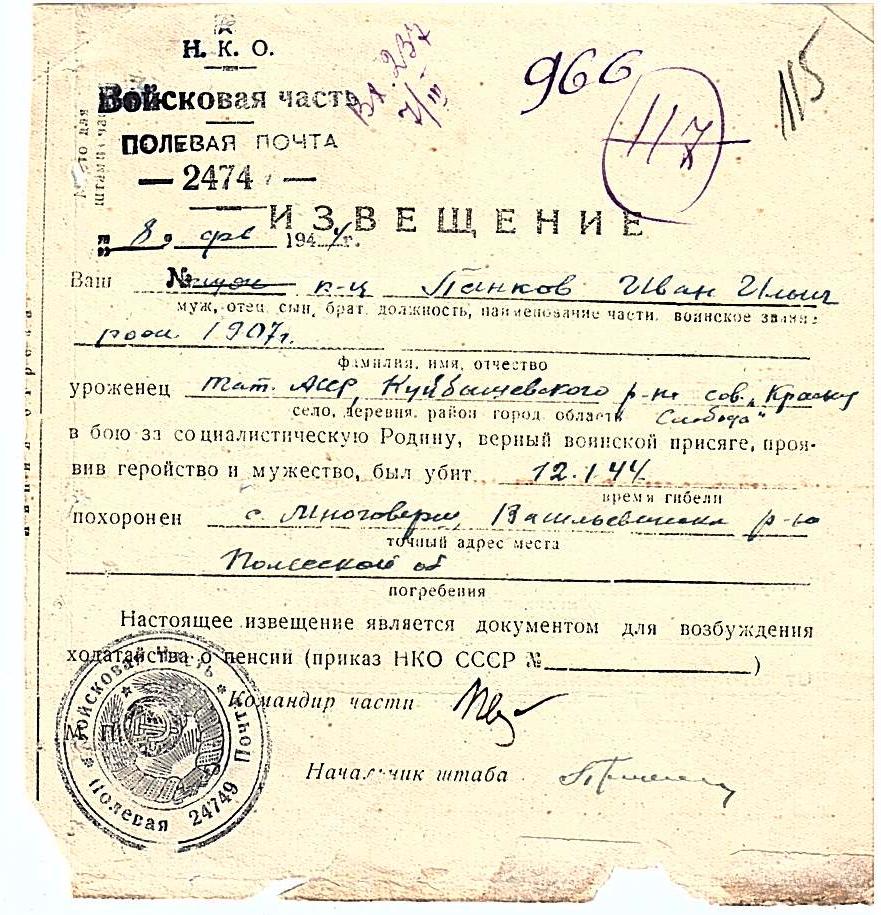 Н. К. О.
Войсковая часть
ПОЛЕВАЯ ПОЧТА
— 2474 —
Вх. 237
7/III
966
117
115
ИЗВЕЩЕНИЕ
„ 8 " фев 1944 г.
Ваш к-ц Панков Иван Ильич
муж, отец, сын, брат, должность, наименование части, воинское звание
рожд. 1907г.
фамилия, имя, отчество
уроженец Тат. АССР, Куйбышевского р-на сов. „Красная
село, деревня, район город, область
Слобода"
в бою за социалистическую Родину, верный воинской присяге, проя-
вив геройство и мужество, был убит 12.1.44.
время гибели
похоронен с. р-на
точный адрес места
Полесской об
погребения
Настоящее извещение является документом для возбуждения
ходатайства о пенсии (приказ НКО СССР № )
Командир части
М. П.
Начальник штаба
Войсковая Часть * Полевая Почта 24749